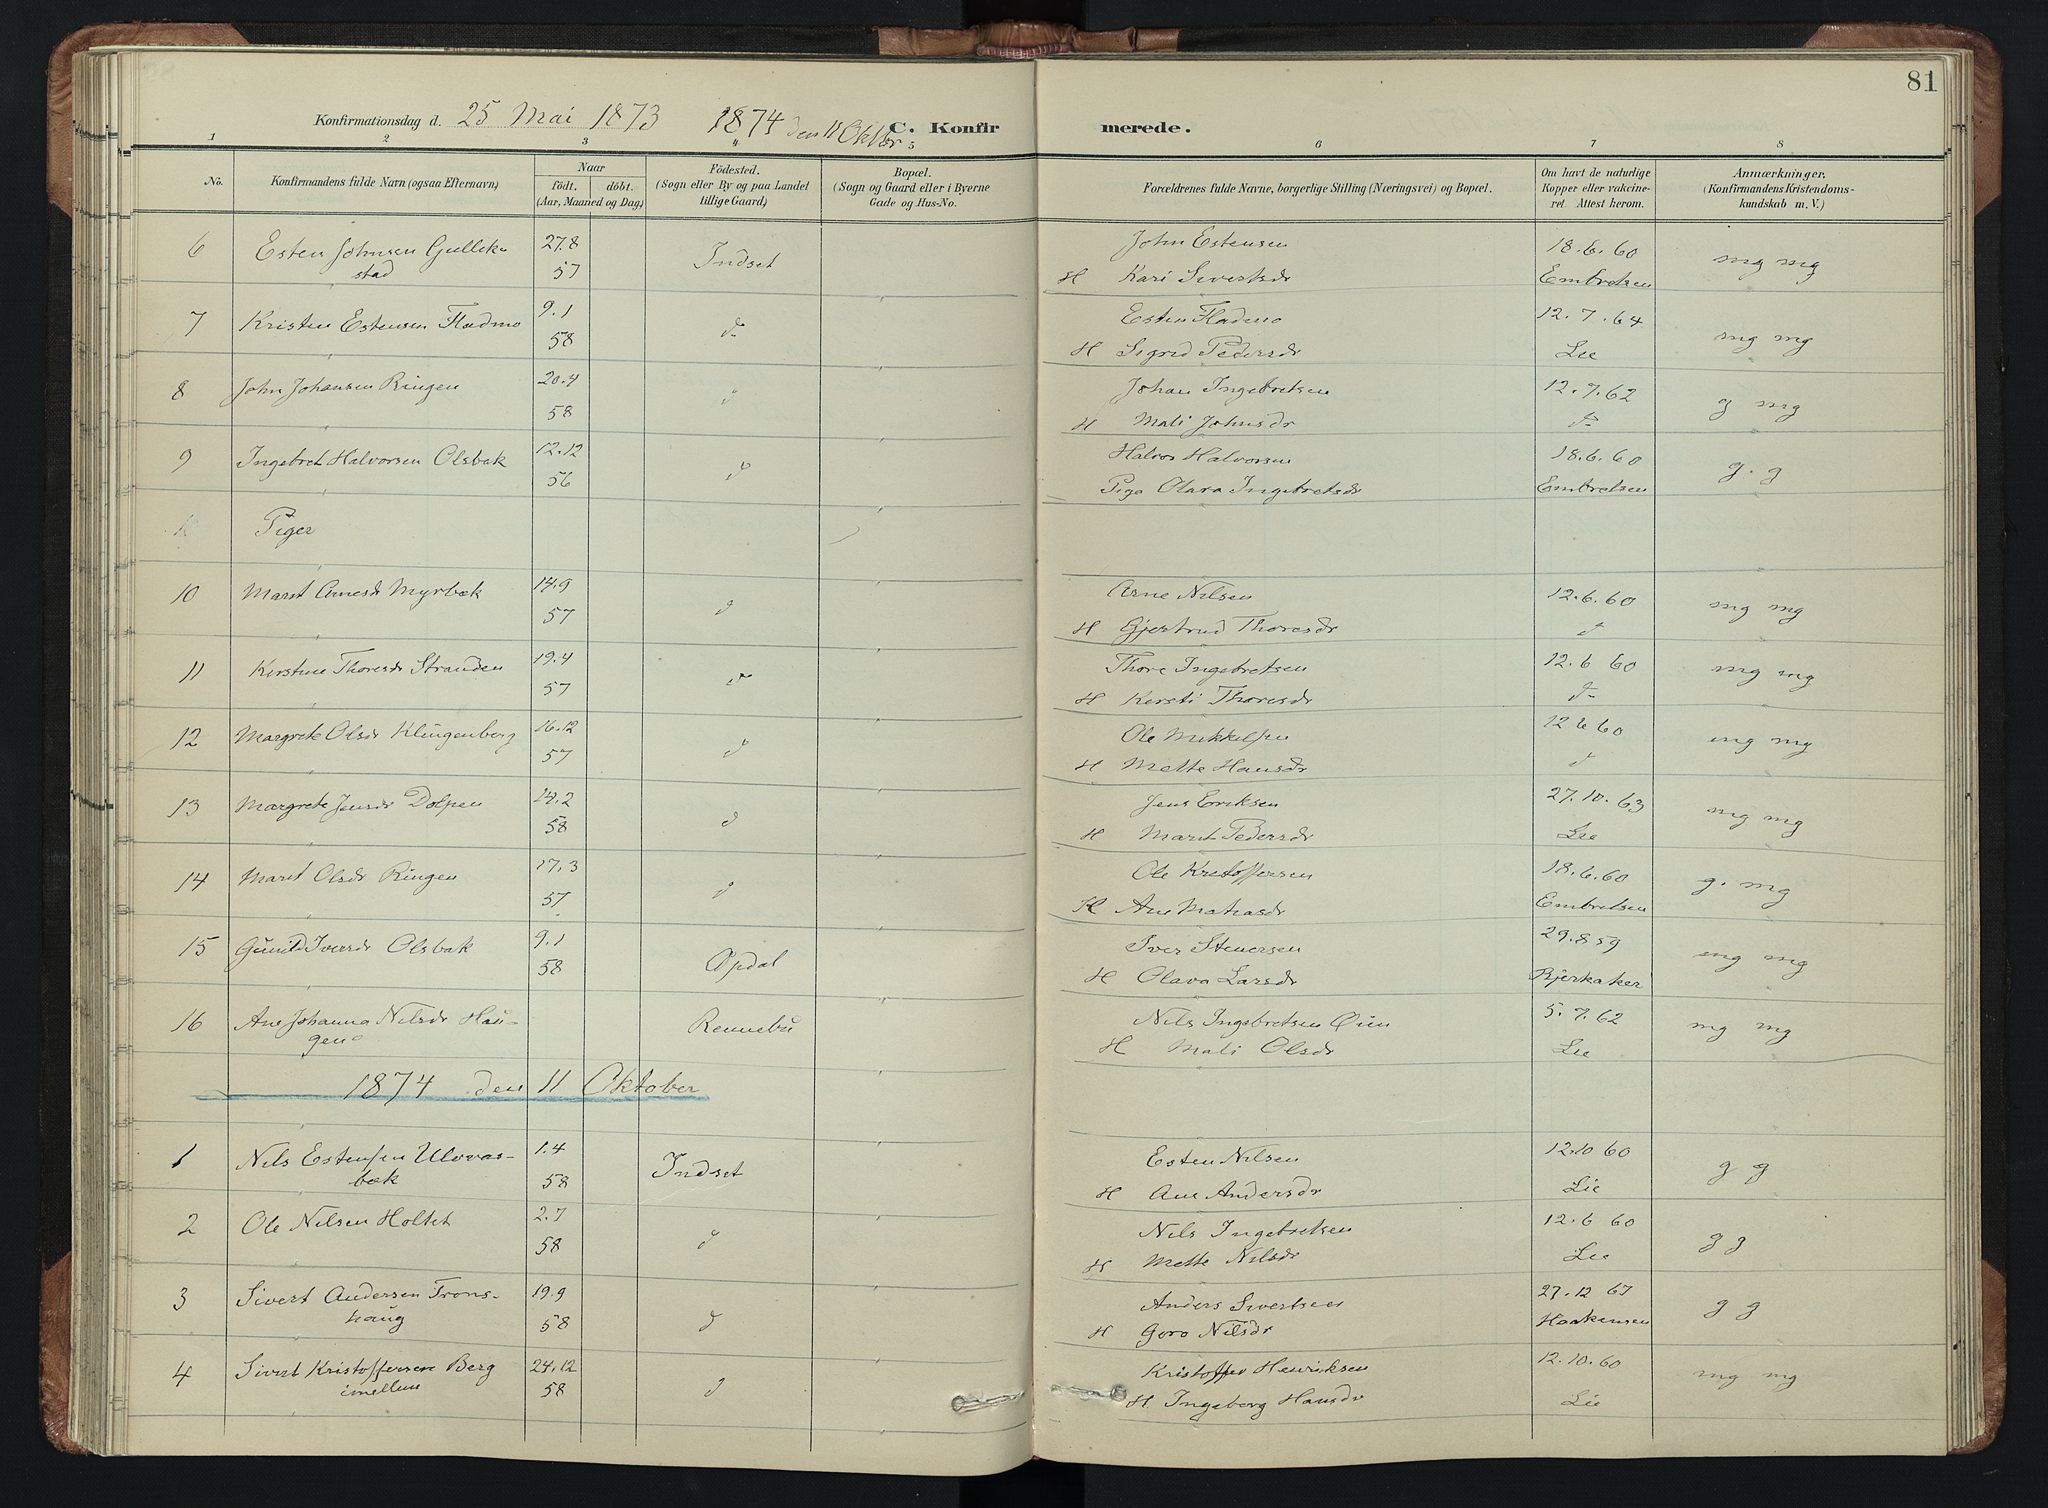 81
Konfirmationsdag d. 25 Mai 1873 1874 den 11 Oktbr C. Konfir merede.
1 2 3 4 5 6 7 8
No. Konfirmandens fulde Navn (ogsaa Efternavn) Naar födt. döbt. (Aar, Maaned og Dag) Födested. (Sogn eller By og paa Landet tillige Gaard) Bopæl. (Sogn og Gaard eller i Byerne Gade og Hus-No. Forældrenes fulde Navne, borgerlige Stilling (Næringsvei) og Bopæl. Om havt de naturlige Kopper eller vakcineret. Attest herom. Anmærkninger. (Konfirmandens Kristendomskundskab m. V.)
6 Esten Johnsen Gullik- 27.8 Indset John Estensen 18.6.60 mg mg
stad 57 H Kari Sivertsdr Embretsen
7 Kristen Estensen Fladmo 9.1 d- Esten Fladmo 12.7.64 mg mg
58 H Sigrid Pedersdr Lie
8 John Johansen Ringen 20.4 d Johan Ingebretsen 12.7.62 g mg
58 H Mali Johnsdr d-
9 Ingebret Halvorsen Olsbæk 12.12 d Halvor Halvorsen 18.6.60 g. g
56 Pige Olava Ingebretsdr Embretsen
Piger
10 Marit Arnesdr Myrbæk 14.9 d Arne Nilsen 12.6.60 mg mg
57 H Gjertrud Thoresdr d
11 Kerstine Thoresdr Stranden 19.4 d Thore Ingebretsen 12.6 60 mg mg
57 H Kersti Thoresdr d-
12 Margrete Olsdr Klingenberg 16.12 d Ole Mikkelsen 12 6 60 mg mg
57 H Mette Hansdr d
13 Margrete Jensdr Dolpen 14.2 d Jens Eriksen 27.10.63 mg mg
58 H Marit Pedersdr Lie
14 Marit Olsdr Ringen 17.3 d Ole Kristoffersen 18.6.60 g. mg
57 H Ane Matiasdr Embretsen
15 Gunild Iversdr Olsbæk 9.1 Opdal Iver Stenersen 29.8 59 mg mg
58 H Olava Larsdr Bjerkaker
16 Ane Johanna Nilsdr Hau- Rennebu Nils Ingebretsen Øien 5.7.62 mg mg
gen H Mali Olsdr Lie
1874 den 11 Oktober
1 Nils Estensen Ulvvas- 1.4 Indset Esten Nilsen 12.10 60 g g
bæk 58 H Ane Andersdr Lie
2 Ole Nilsen Holtet 2.7 d Nils Ingebretsen 12.6 60 g g
58 H Mette Nilsdr Lie
3 Sivert Andersen Trons- 19.9 d Anders Sivertsen 27.12 67 g g
haug 58 H Goro Nilsdr Haakensen
4 Sivert Kristoffersen Berg 24.12 d Kristoffer Henriksen 12.10.60 mg mg
imellem 58 H Ingeborg Hansdr Lie